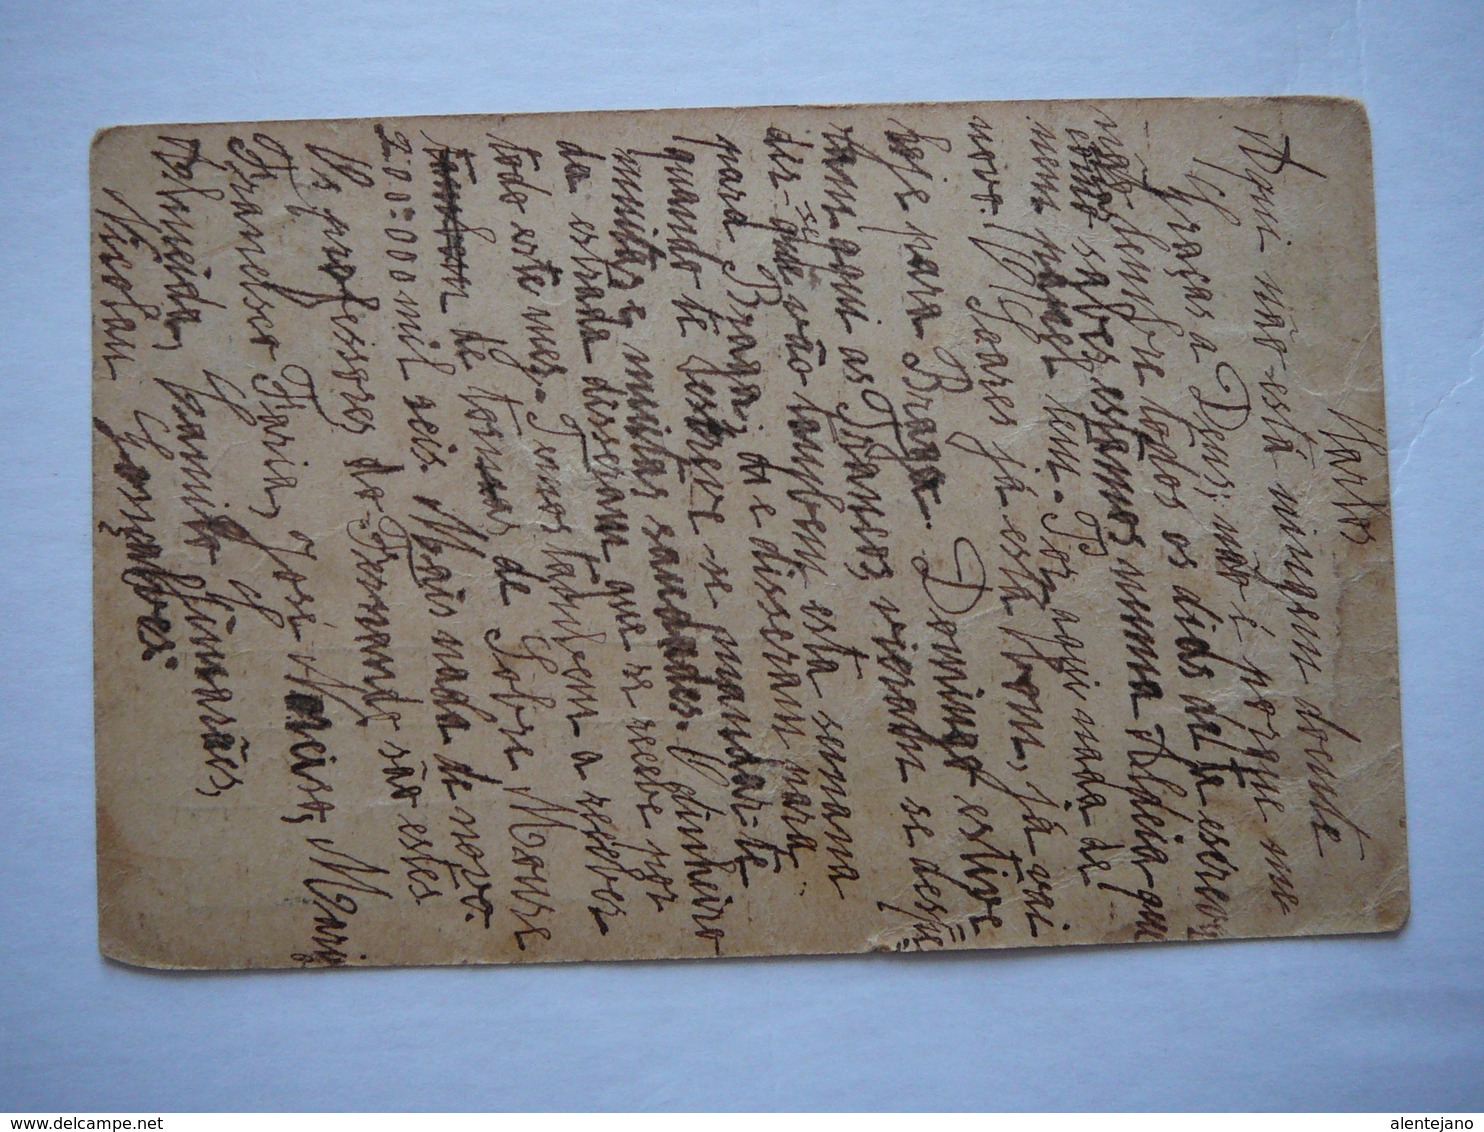 Karlos
Aqui não está ningem doente
Graças a Deus; não é porque me
não lembre todos os dias de te escrev
como sabes estamos numa Aldeia que
nem papel tem. Por aqui nada de
novo. Soares já está bom, já vai
hoje para Braga. Domingo estive
ram aqui as Torances, vieram se despe
dir que vão tambem esta semana
para Braga; e disseram para
quando te escreve-se mandar-te
muitas e muitas saudades. O dinheiro
da estrada disseram que se recebe por
todo este mes. Temos tambem a receber
de tornas de Sobre Moure
200:000 mil reis. Mais nada de novo.
Os professores do Fernando são estes
Francisco Faria, José Maciso, Mario
Almeida, Camilo Guimarães,
Nicolau Gonçalves
alentejano